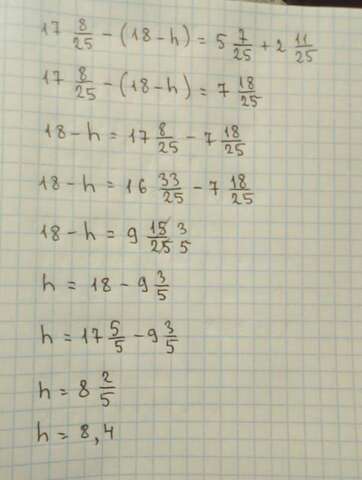 17 8/25 - (18 - h) = 5 7/25 + 2 11/25
17 8/25 - (18 - h) = 7 18/25
18 - h = 17 8/25 - 7 18/25
18 - h = 16 33/25 - 7 18/25
18 - h = 9 15/25 3/5
h = 18 - 9 3/5
h = 17 5/5 - 9 3/5
h = 8 2/5
h = 8,4